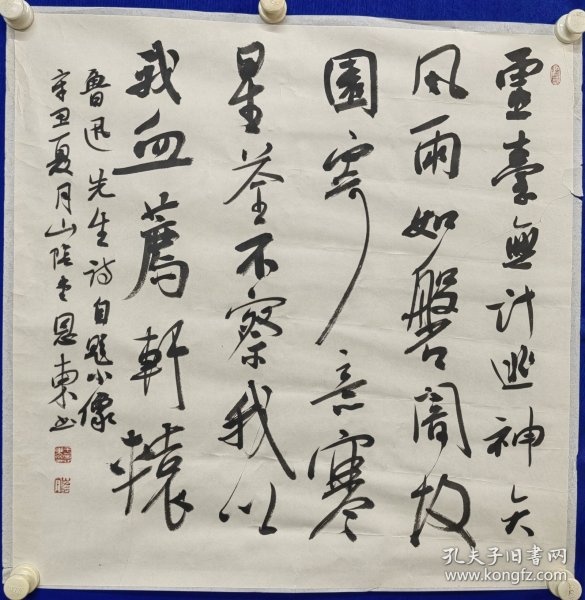 靈臺無計逃神矢
風雨如磐闇故
園寄意寒
星荃不察我以
我血薦軒轅
魯迅先生詩自題小像
辛丑夏月山陰恩東书
孔夫子旧书网
www.kongfz.com